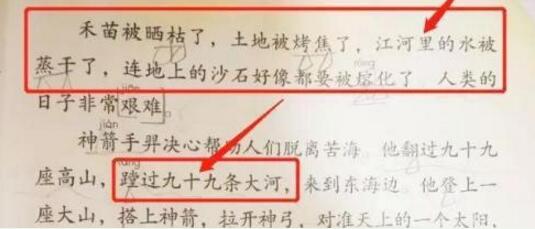 禾苗被晒枯了，土地被烤焦了，江河里的水被
蒸干了，连地上的沙石好像都要被熔化了。人类的
日子非常艰难。
神箭手羿决心帮助人们脱离苦海。他翻过九十九
座高山，蹚过九十九条大河，来到东海边。他登上一
座大山，搭上神箭，拉开神弓，对准天上的一个太阳，